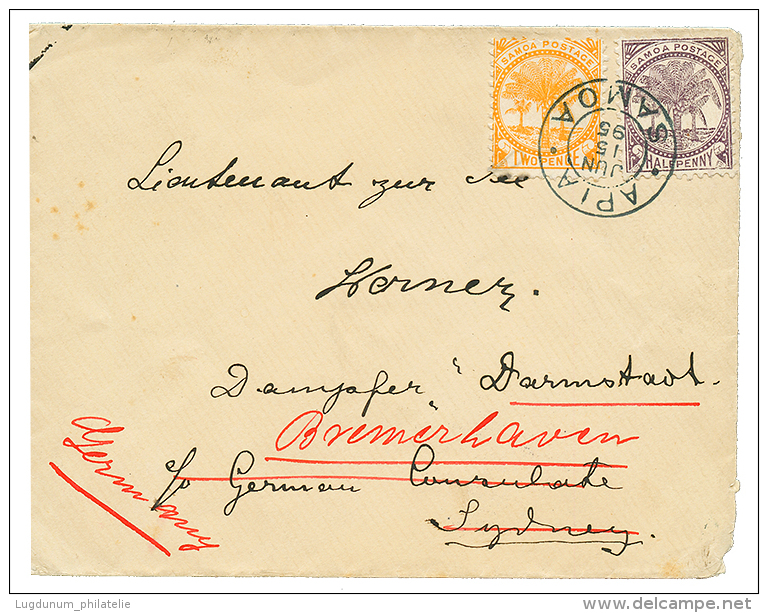 SAMOA POSTAGE
TWO PENCE
SAMOA POSTAGE
HALFPENNY
APIA SAMOA
JUN
15
95
Lieutenant zur See
Werner.
Dampfer "Darmstadt.
Bremerhaven
c/o German Consulate
Sydney.
Germany
Lugdunum_philatelie
delcampe.net